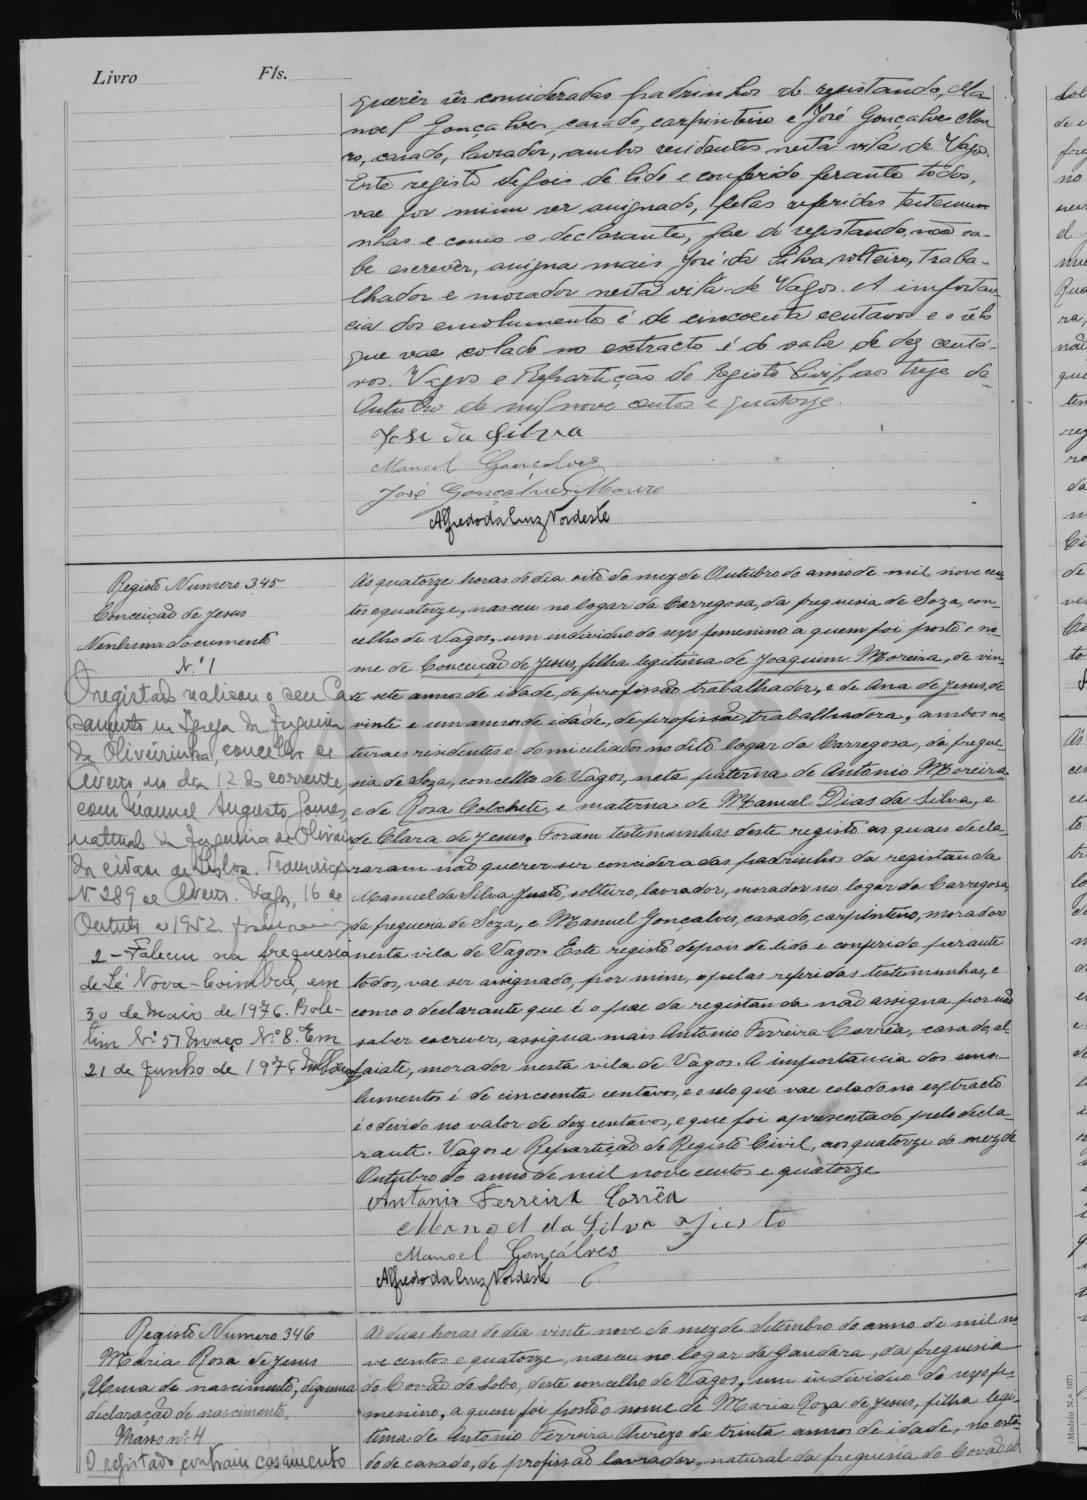 Livro Fls.
querêr sêr consideradas padrinhos do registando, Ma-
noel Gonçalves, casado, carpinteiro e José Gonçalves Mou-
ro, casado, lavrador, ambos residentes nesta vila de Vagos.
Este registo depois de lido e conferido perante todos,
vae por mim ser assignado, pelas referidas testemu-
nhas e como o declarante, pae do registando, não sa-
be escrevêr, assigna mais José da Silva, solteiro, traba-
lhador e morador nesta vila de Vagos. A importan-
cia dos emolumentos é de cincoenta centavos e o sêlo
que vae colado no extracto é do valor de dez centa-
vos. Vagos e Repartição do Registo Civil, aos treze de
Outubro de mil nove centos e quatorze.
José da Silva
Manoel Gonçalves
José Gonçalves Mouro
Alfredo da Cruz Nordeste
Registo Numero 345
Conceição de Jesus
Nenhum documento
Nº 1
O registado realisou o seu Ca-
samento na Igreja da freguesia
de Oliveirinha, concelho de
Aveiro no dia 12 do corrente,
com Manuel Augusto Gomes,
natural da freguesia dos Olivais
da cidade de Lisboa.
Nº 289 de Aveiro. Vagos, 16 de
Outubro de 1952.
2 - Faleceu na freguesia
de Sé Nova - Coimbra, em
30 de Maio de 1976. Bole-
tim Nº 57 Maço Nº 8. Em
21 de Junho de 1976
Ás quatorze horas do dia oito do mez de Outubro do anno de mil nove cen-
tos e quatorze, nasceu no logar da Carregosa, da freguesia de Soza, con-
celho de Vagos, um individuo do sexo femenino a quem foi posto o no-
me de Conceição de Jesus, filha legitima de Joaquim Moreira, de vin-
te e sete annos de idade, de profissão trabalhador, e de Ana de Jesus, de
vinte e um annos de idade, de profissão trabalhadora, ambos na-
turaes residentes e domiciliados no dito logar da Carregosa, da fregue-
sia de Soza, concelho de Vagos, neta paterna de Antonio Moreira
e de Rosa Colchete, e materna de Manuel Dias da Silva, e
de Clara de Jesus. Foram testemunhas deste registo as quaes decla-
raram não querer ser concideradas padrinhos da registanda
Manuel da Silva Justo, solteiro, lavrador, morador no logar da Carregosa,
da freguesia de Soza, e Manuel Gonçalves, casado, carpinteiro, morador
nesta vila de Vagos. Este registo depois de lido e conferido perante
todos, vae ser assignado, por mim, e pelas referidas testemunhas, e
como o declarante que é o pae da registanda não assigna por não
saber escrever, assigna mais Antonio Ferreira Corrêa, casado, al-
faiate, morador nesta vila de Vagos. A importancia dos emo-
lumentos é de cincoenta centavos, e o selo que vae colado no extracto
é o devido no valor de dez centavos, e que foi apresentado pelo decla-
rante. Vagos e Repartição do Registo Civil, aos quatorze do mez de
Outubro do anno de mil nove centos e quatorze
Antonio Ferreira Corrêa
Manoel da Silva Justo
Manoel Gonçálves
Alfredo da Cruz Nordeste
Registo Numero 346
Maria Rosa de Jesus
declaração de nascimento.
Masso nº 4
O registado contraiu casamento
Ás duas horas do dia vinte nove do mez de Setembro do anno de mil no-
ve centos e quatorze, nasceu no logar da Gandara, da freguesia
do Covão do Lobo, deste concelho de Vagos, um individuo do sexo fe-
menino, a quem foi posto o nome de Maria Roza de Jesus, filha legi-
tima de Antonio Ferreira Therezo de trinta annos de idade, no esta-
do de casado, de profissão lavrador, natural da freguesia do Covão do
(Modelo N.º 107)